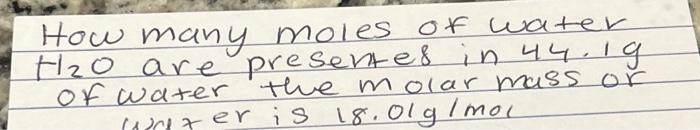 How many moles of water
H2O are presented in 44.1g
of water the molar mass or
water is 18.01g/mol